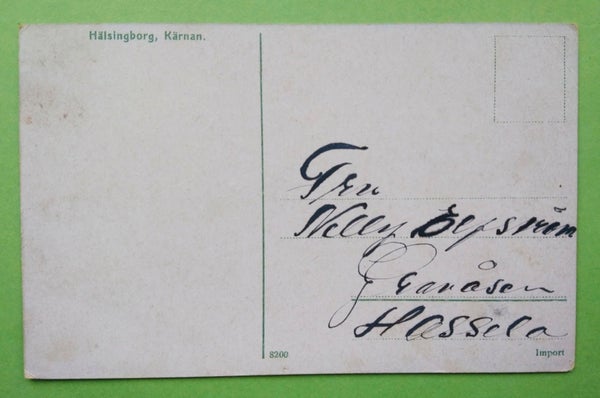 Hälsingborg, Kärnan.
Fru
Nelly Elfström
Granåsen
Hassela
8200
Import